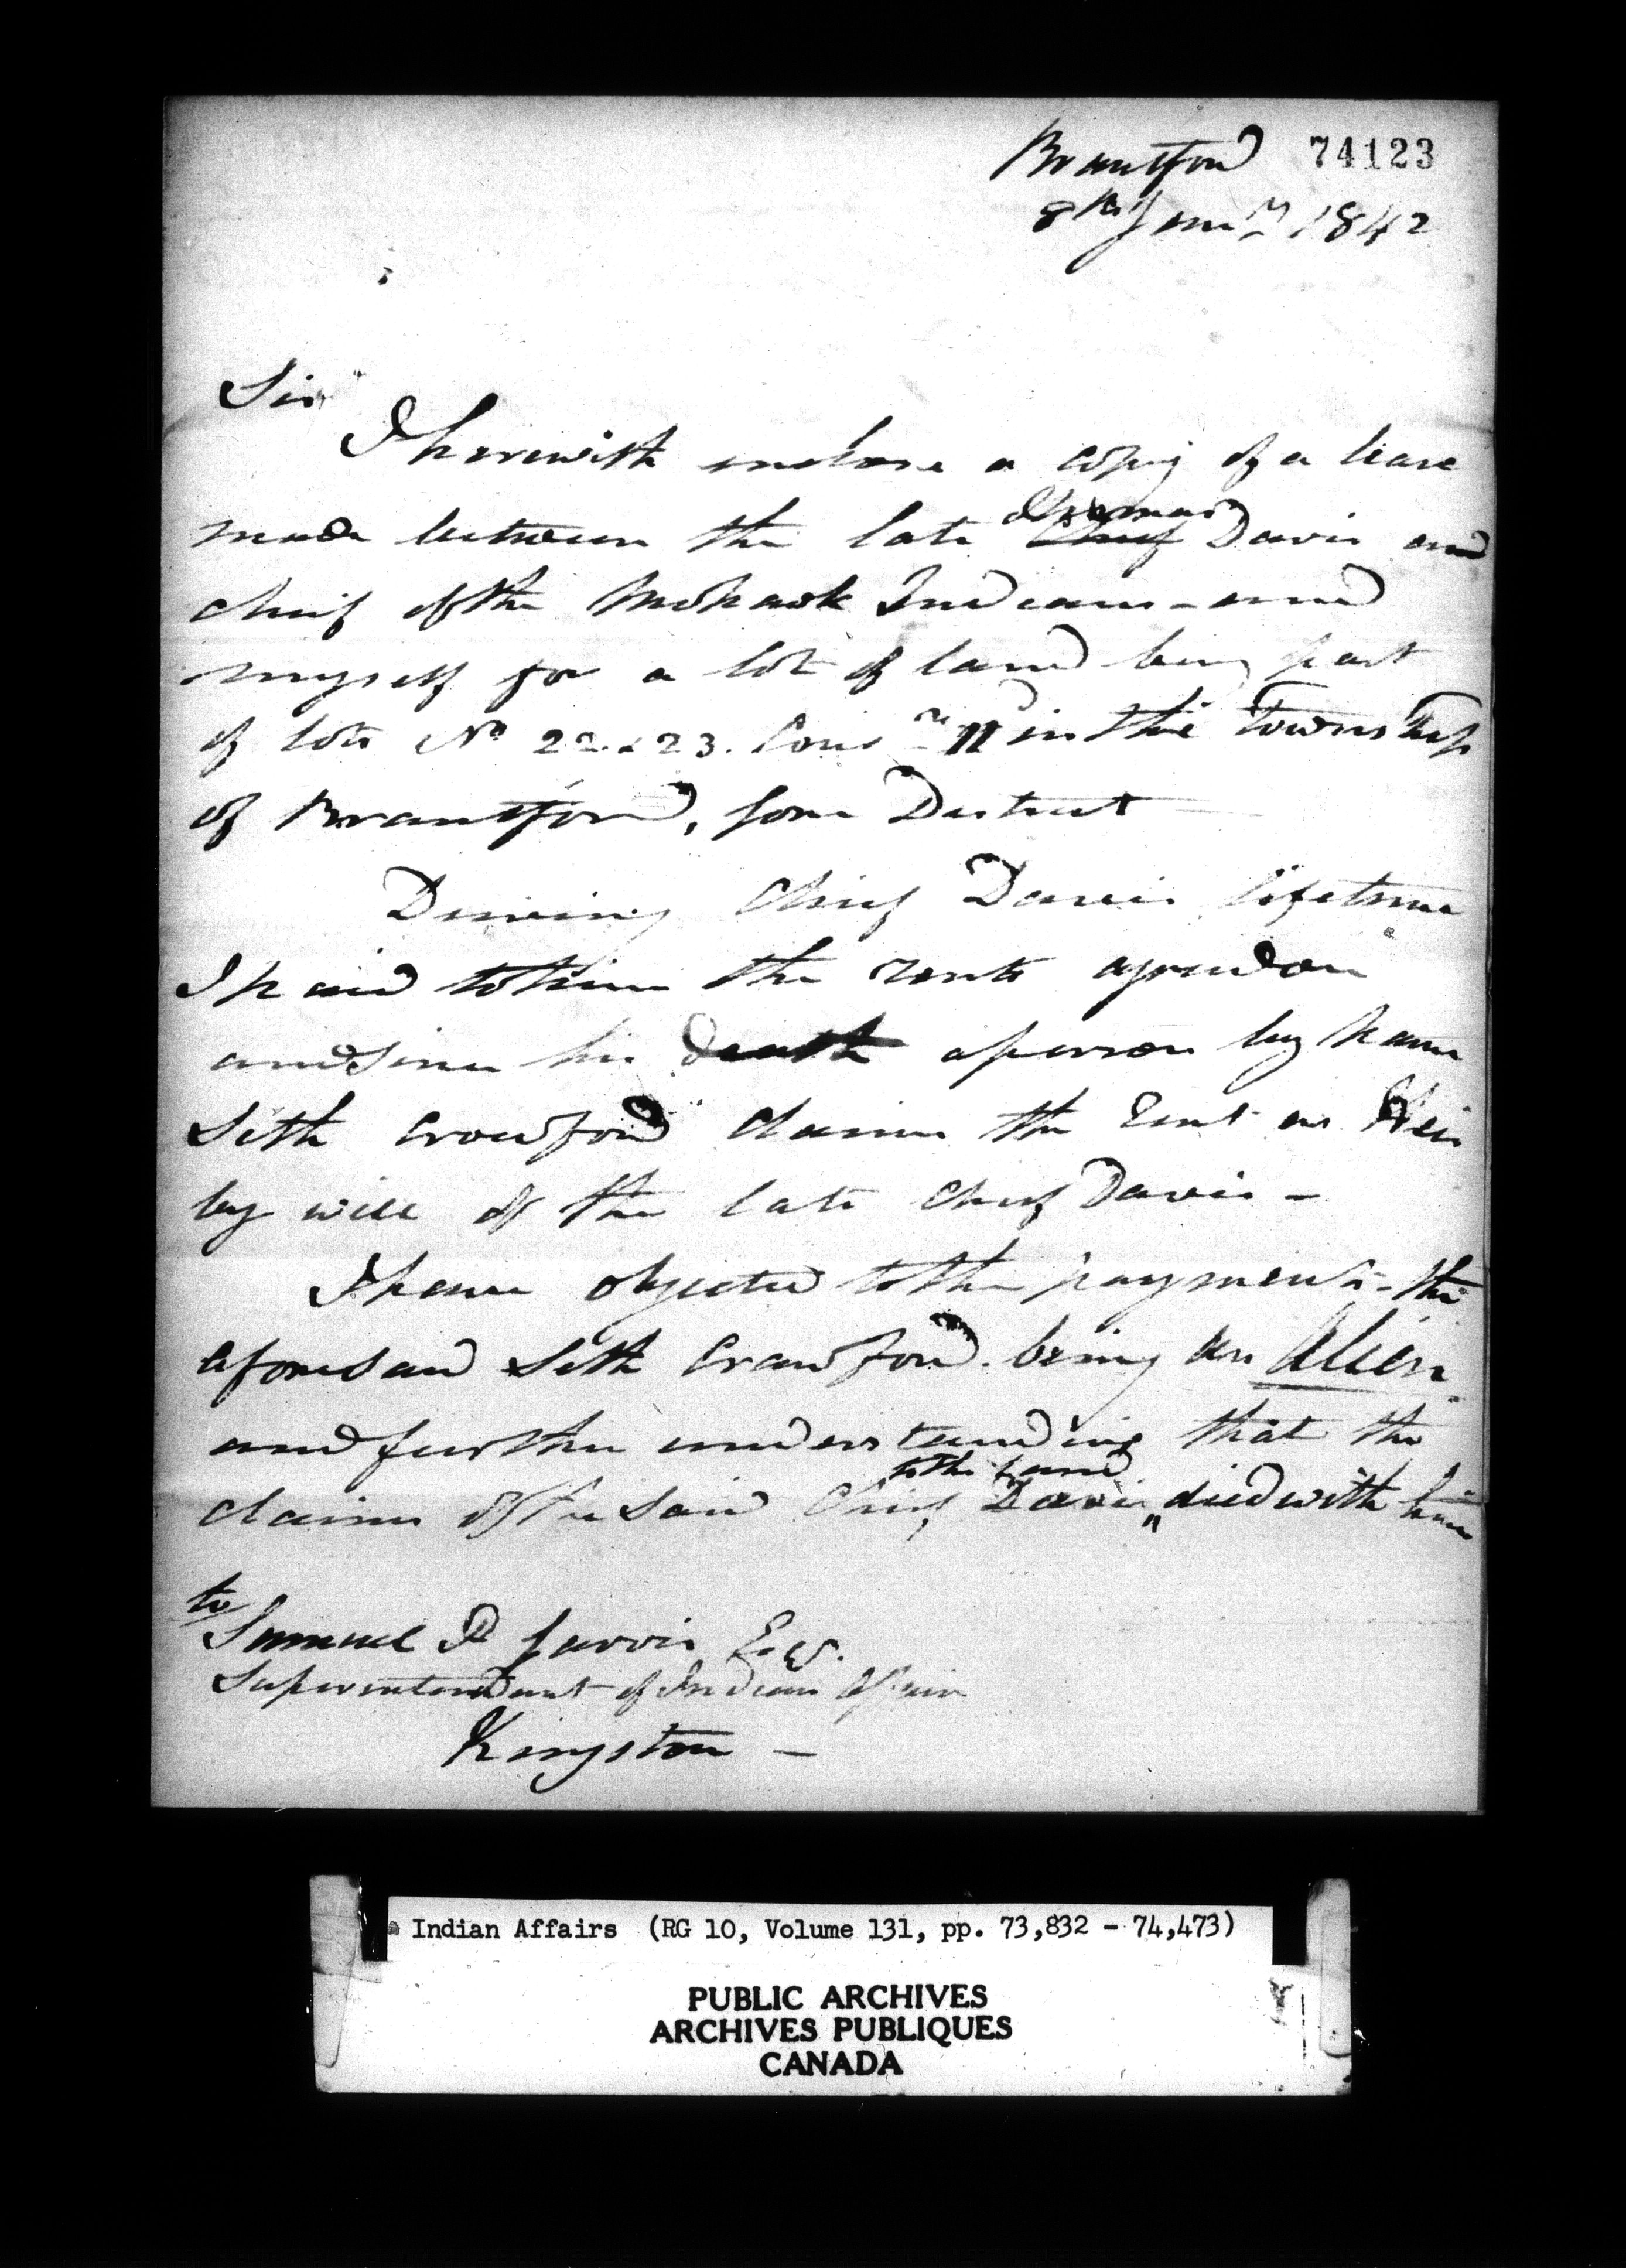 Brantford 74123
8th Jany 1842
Sir
I herewith enclose a copy of a lease
made between the late Thomas Davis and
chief of the Mohawk Indians - and
myself for a lot of land being part
of lots No 22 & 23. Conn II in the Township
of Brantford, Gore District
During Chief Davis lifetime
I paid to him the rents agreed on
and since his death a person by name
Seth Crawford claims the Rent as Heir
by will of the late Chief Davis -
I have objected to the payment - the
aforesaid Seth Crawford being an Alien
and further understanding that the
to the Land
claims of the said Chief Davis " died with him
to
Samuel P Jarvis Esqr.
Superintendant of Indian Affairs
Kingston -
Indian Affairs (RG 10, Volume 131, pp. 73,832 - 74,473)
PUBLIC ARCHIVES
ARCHIVES PUBLIQUES
CANADA